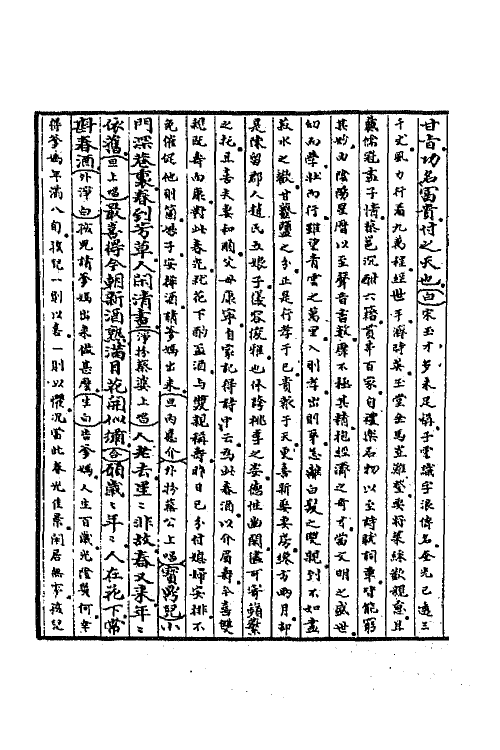 甘旨功名富貴付之天也白宋玉才多未足稱子雲識字浪傳名奎光已透三
千丈風力行看九萬程經世手濟時英玉堂金馬豈難登要將菜綵歡親意且
戴儒冠盡子情蔡邕沉酣六籍貫串百家自禮樂名物以至詩賦詞章皆能窮
其妙由陰陽星曆以至聲音書數靡不極其精抱經濟之奇才當文明之盛世
幼而學壯而行雖望青雲之萬里入則孝出則弟怎離白髮之雙親到不如盡
菽水之歡甘虀鹽之分正是行孝于己責報于天更喜新娶妻房纔方兩月却
是陳留郡人趙氏五娘子儀容俊雅也休誇桃李之姿德性幽閑儘可寄蘋蘩
之托且喜夫妻和順父母康寧自家記得詩中云為此春酒以介眉壽今喜雙
親既壽而康對此春光就花下酌盃酒與雙親稱壽昨日已分付媳婦安排不
免催促他則箇娘子安排酒請爹媽出來旦內應介外扮蔡公上唱寶鼎兒小
門深巷裏春到芳草人閒清晝淨扮蔡婆上唱人老去星〻非故春又來年〻
依舊旦上唱最喜得今朝新酒熟滿目花開似繡合願歲〻年〻人在花下常
斟春酒外淨白孩兒請爹媽出來做甚麼生白告爹媽人生百歲光陰幾何幸
得爹媽年滿八旬孩兒一則以喜一則以懼沉當此春光佳景閑居無事孩兒